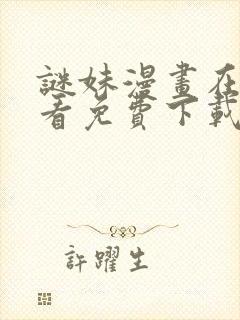 謎妹漫畫在
看免費下載
許躍生